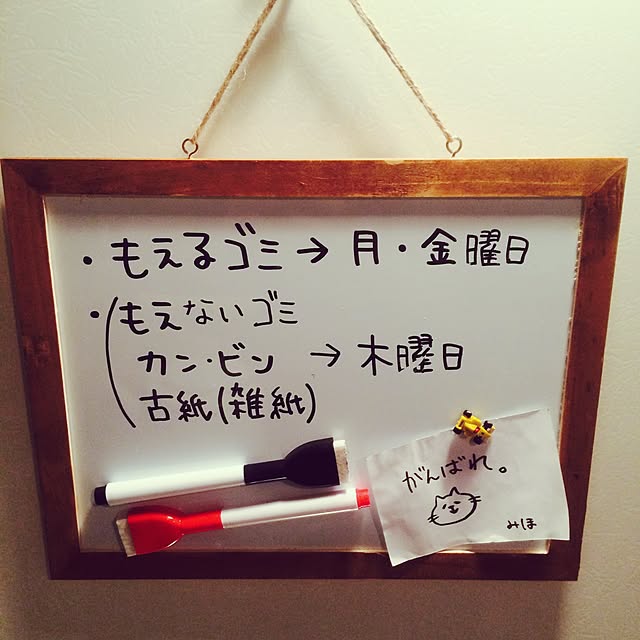 ・もえるゴミ→月・金曜日
・(もえないゴミ
カン・ビン→木曜日
古紙(雑紙)
がんばれ。
みほ